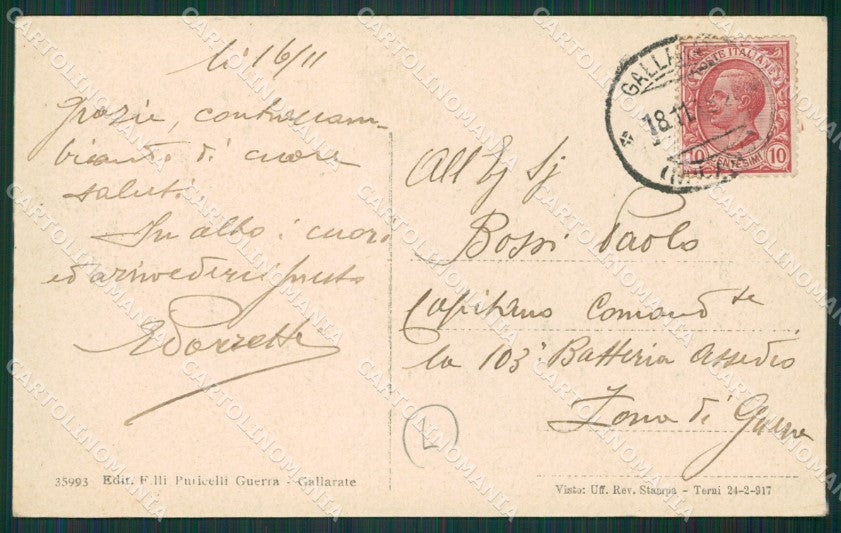 li 16/11
Grazie, contraccam-
biando di cuore
saluti.
In alto i cuori
ed arrivederci presto
All'Eg Sj
Bossi Paolo
Capitano Comand.te
la 103ª Batteria assedio
Zona di Guerra
GALLARATE
18.11.
POSTE ITALIANE
10 CENTESIMI 10
L
35993 Edit. F.lli Puricelli Guerra - Gallarate
Visto: Uff. Rev. Stampa - Terni 24-2-917
CARTOLINOMANIA